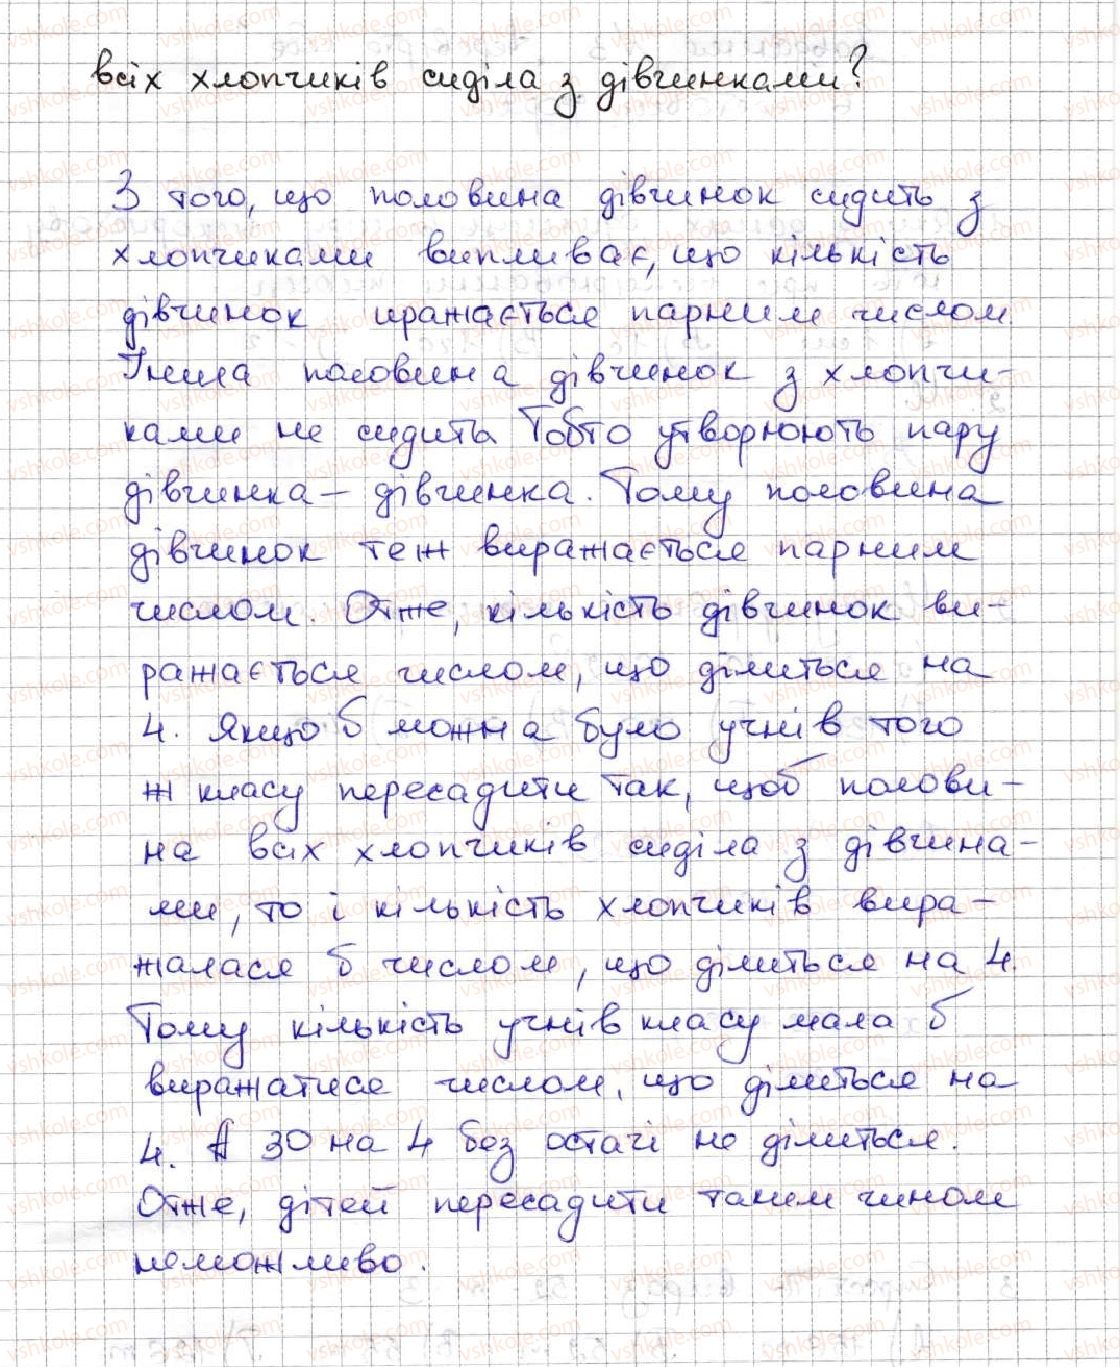 всіх хлопчиків сиділа з дівчинками?
З того, що половина дівчинок сидить з
хлопчиками випливає, що кількість
дівчинок иражається парним числом.
Інша половина дівчинок з хлопчи-
ками не сидить Тобто утворюють пару
дівчинка – дівчинка. Тому половина
дівчинок теж виражається парним
числом. Отже, кількість дівчинок ви-
ражається числом, що ділиться на
4. Якщо б можна було учнів того
ж класу пересадити так, щоб полови-
на всіх хлопчиків сиділа з дівчина-
ми, то і кількість хлопчиків вира-
жалася б числом, що ділиться на 4.
Тому кількість учнів класу мала б
виражатися числом, що ділиться на
4. А 30 на 4 без остачі не ділиться.
Отже, дітей пересадити таким чином
неможливо.